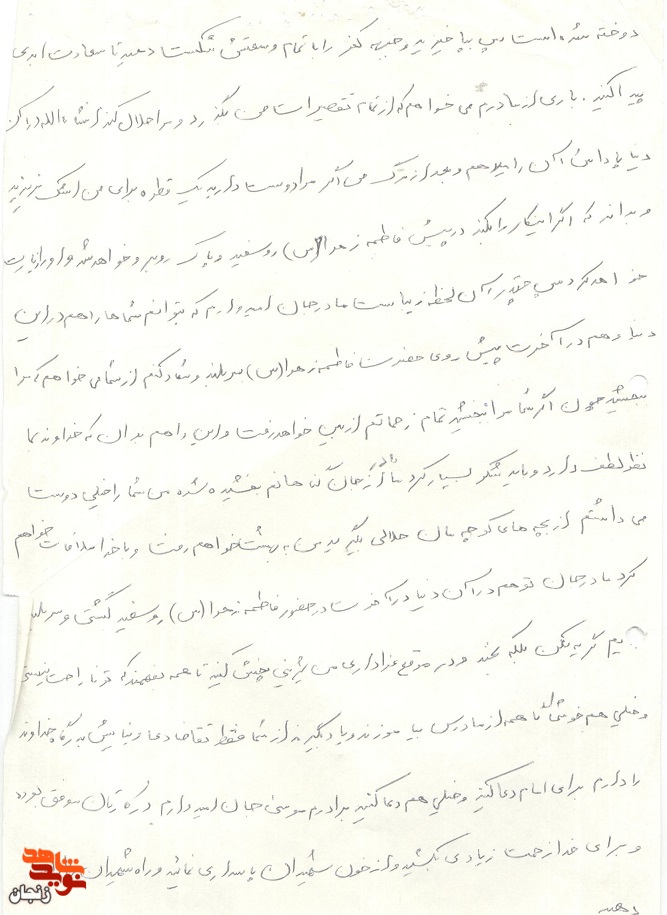 دوخته شده است پس بپا خیزید و جبهه کفر را با تمام وسعتش شکست دهید تا سعادت ابدی
پیدا کنید. باری از مادرم می خواهم که از تمام تقصیرات من بگذرد و مرا حلال کند انشاءالله در آن
دنیا پاداش آن را بدهم و بعد از مرگ من اگر مرا دوست دارید یک قطره برای من اشک نریزید
و بداند که اگر اینکار را بکند در پیش فاطمه زهرا (س) روسفید و پاک روبرو خواهد شد و او را زیارت
خواهد کرد پس چقدر آن لحظه زیبا است مادرجان امیدوارم که بتوانم شماها را هم در این
دنیا و هم در آخرت پیش روی حضرت فاطمه زهرا (س) سربلند و شاد کنم از شما می خواهم که مرا
ببخشید چون اگر شما مرا نبخشید تمام زحماتم از بین خواهد رفت و این را هم بدان که خداوند بما
نظر لطف دارد و باید شکر بسیار کرد مادر جان گناهانم بخشیده شده من شما را خیلی دوست
می داشتم از بچه های کوچه مان حلالی بگیرید من به بهشت خواهم رفت و با خدا ملاقات خواهم
کرد مادر جان تو هم در آن دنیا در آخرت در حضور فاطمه زهرا (س) روسفید گشتی و سربلند
گریه نکن بلکه بخند و در موقع عزاداری من شیرینی پخش کنید تا همه بفهمند که تو ناراحت نیستی
و خیلی هم خوشحالی تا همه از مادرس بیاموزند و یاد بگیرند از شما فقط تقاضا دعا و نیایش به درگاه خداوند
را دارم برای امام دعا کنید و خیلی هم دعا کنید برادرم موسی جان امیدوارم در کارتان موفق بوده
و برای خدا زحمت زیادی بکشید و از خون شهیدان پاسداری نمائید و راه شهیدان
دهید
نوید شاهد
زنجان